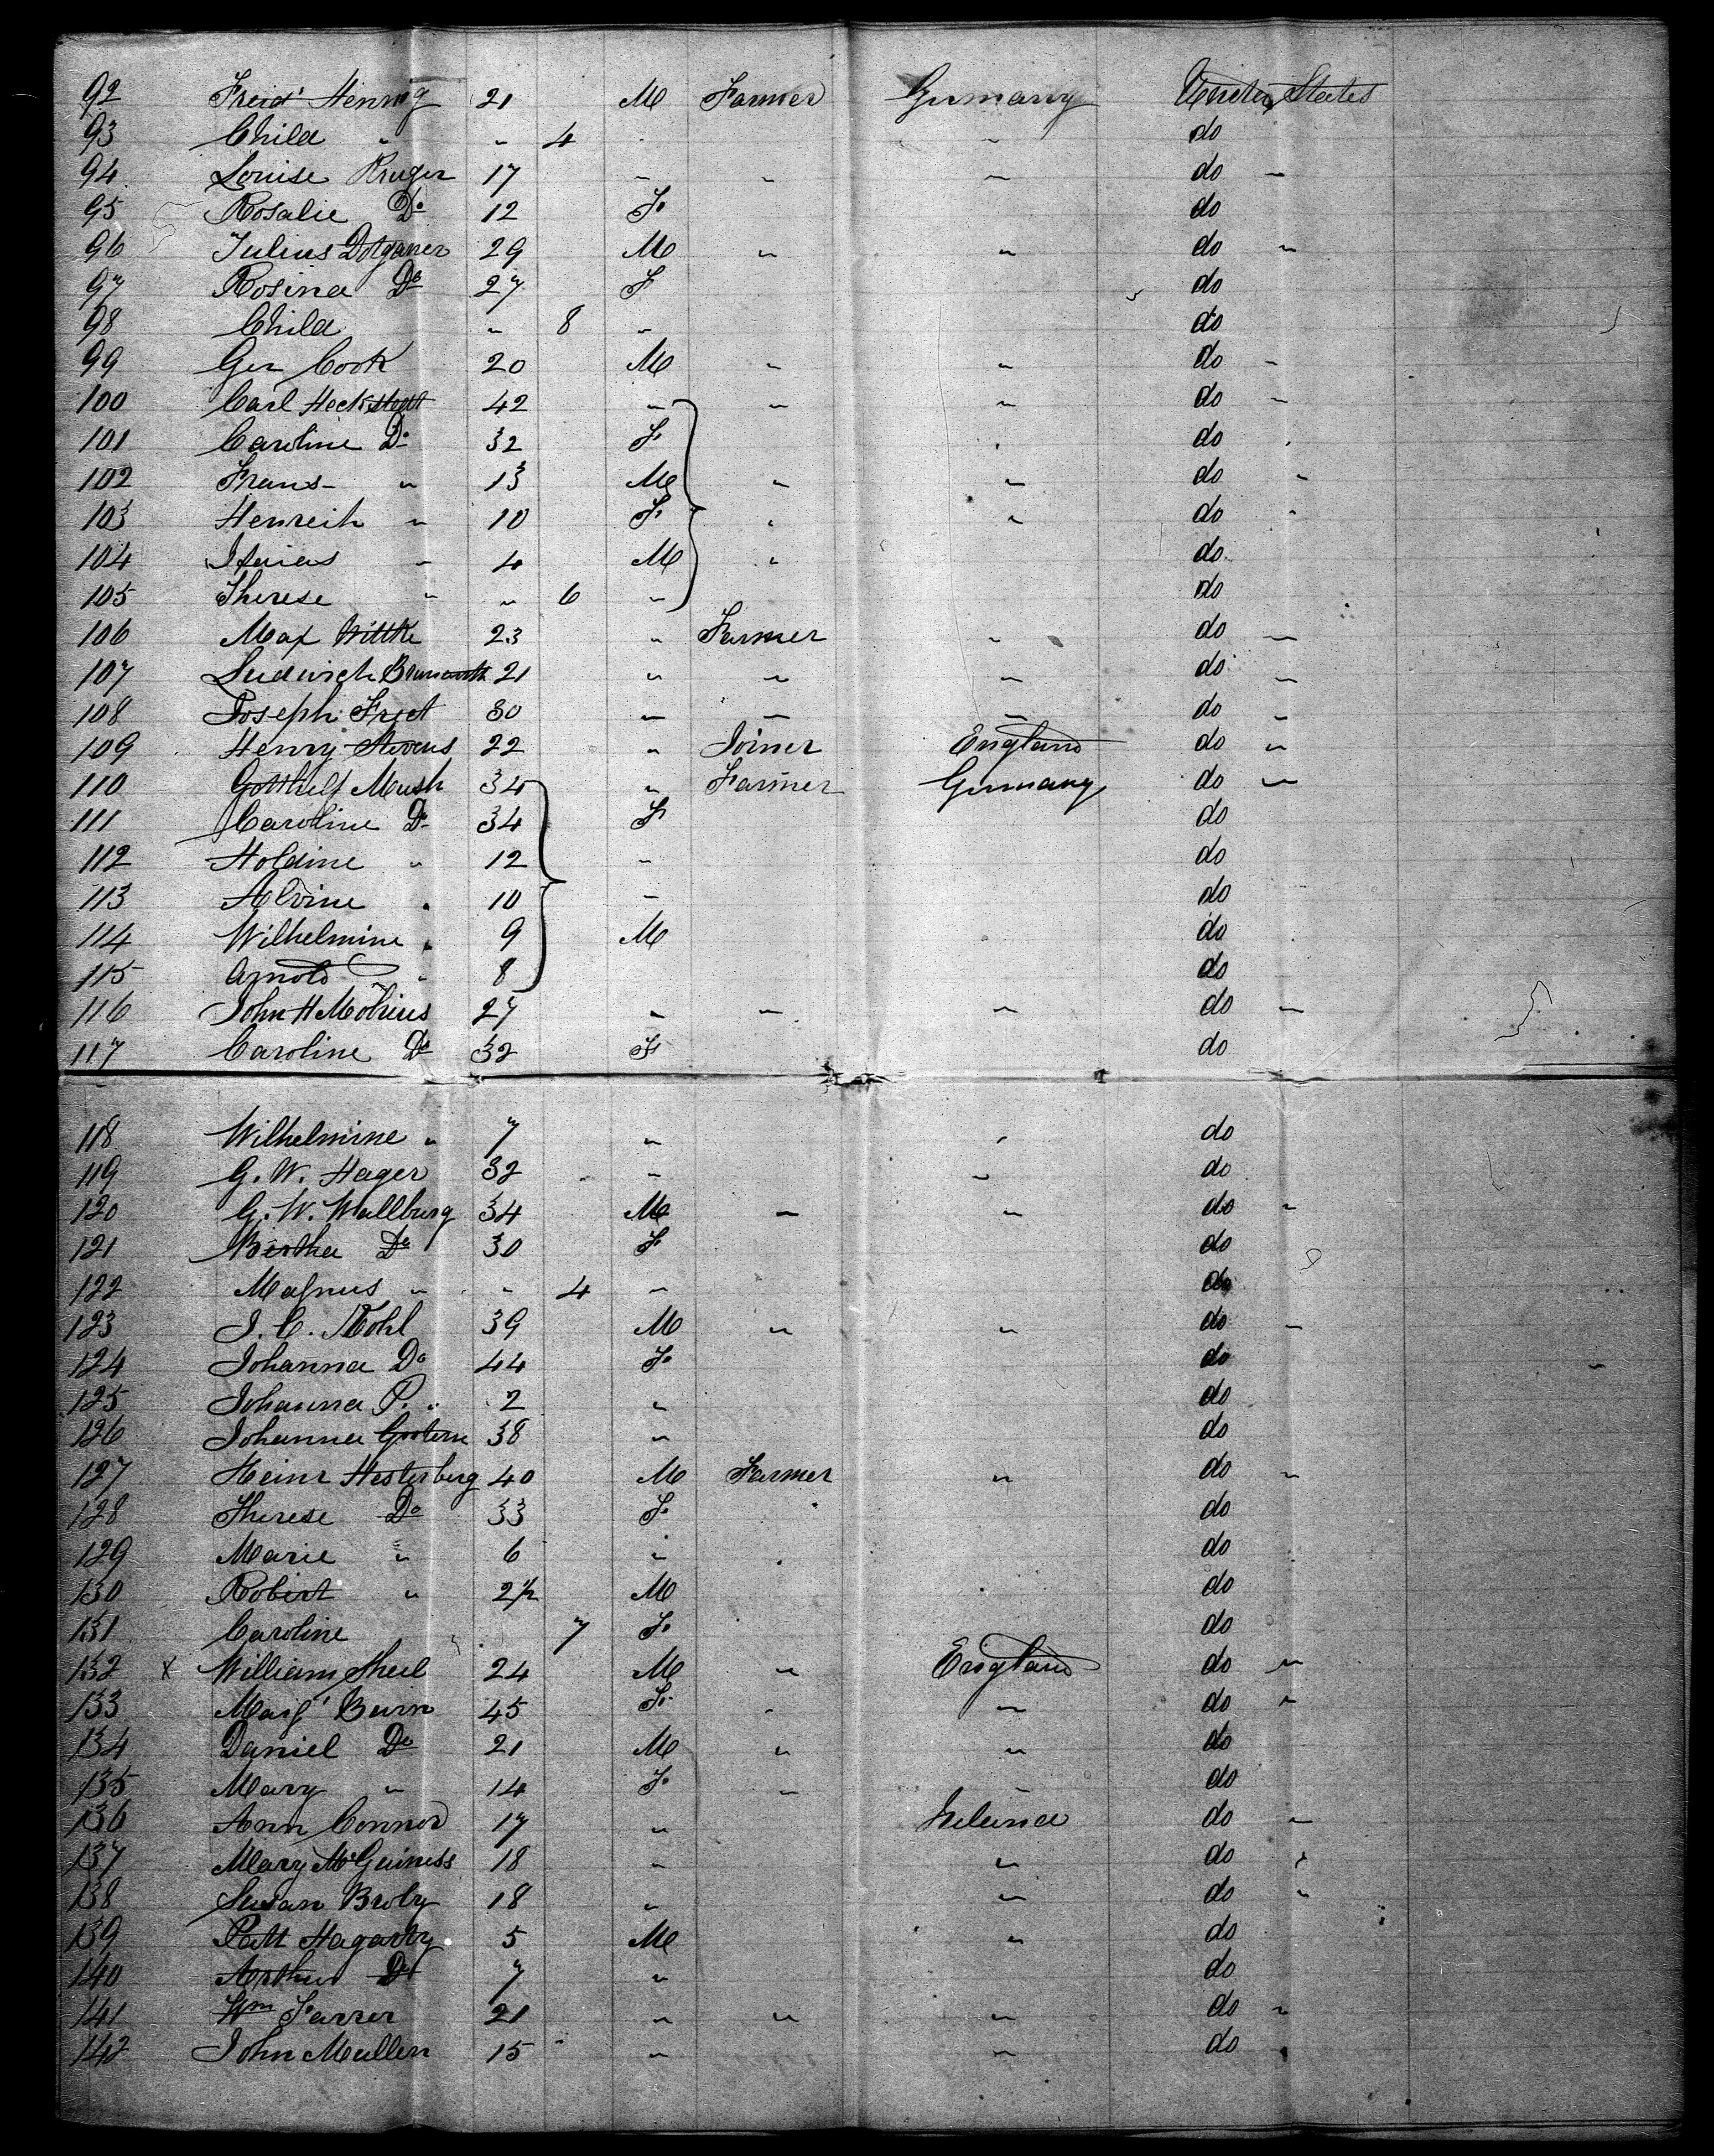 92 Freid' Hennig 21 M Farmer Germany United States
93 Child " " 4 " do
94 Louise Kruger 17 " " " do "
95 Rosalie Do 12 F. do
96 Julius 29 M " " do "
97 Rosina Do 27 F do
98 Child " 8 " do
99 Ger Cook 20 M " " do "
100 Carl Heckstedt 42 " " " do "
101 Caroline Do 32 F. " do "
102 Frans - " 13 M " " do "
103 Henreih " 10 F. " " do "
104 " 4 M " do
105 Therese " " 6 " do
106 Max Wittke 23 " Farmer " do "
107 Ludwich 21 " " " do "
108 Joseph 30 " " " do "
109 Henry Stevens 22 " Joiner England do "
110 Gotthulf Mush 34 " Farmer Germany do "
111 Caroline Do 34 F do
112 Holdine " 12 " do
113 Alvine " 10 " do
114 Wilhelmine " 9 M do
115 Arnold " 8 do
116 John H Mobius 27 " " " do "
117 Caroline Do 32 F do
118 Wilhelmine " 7 " " do
119 G. W. Hager 32 " " do
120 G. W. Wallburg 34 M " " do "
121 Bertha Do 30 F. do
122 Magnus " " 4 " do
123 J. C. Kohl 39 M " " do "
124 Johanna Do 44 F. do
125 Johanna P. " 2 " do
126 Johanna 38 " do
127 Heinr Hesterberg 40 M Farmer " do "
128 Therese Do 33 F. do
129 Marie " 6 " do
130 Robert " 2½ M do
131 Caroline 7 F. do
132 x William Sheil 24 M " England do "
133 Marg' Burn 45 F. " " do "
134 Daniel Do 21 M " " do
135 Mary " 14 F. " " do
136 Ann Connor 17 " Ireland do "
137 Mary McGuiness 18 " " do "
138 Susan Broby 18 " " do "
139 Patt Hagarty 5 M " do
140 Arthur Do 7 " do
141 Wm Farrer 21 " " " do "
142 John Mullen 15 " " do "